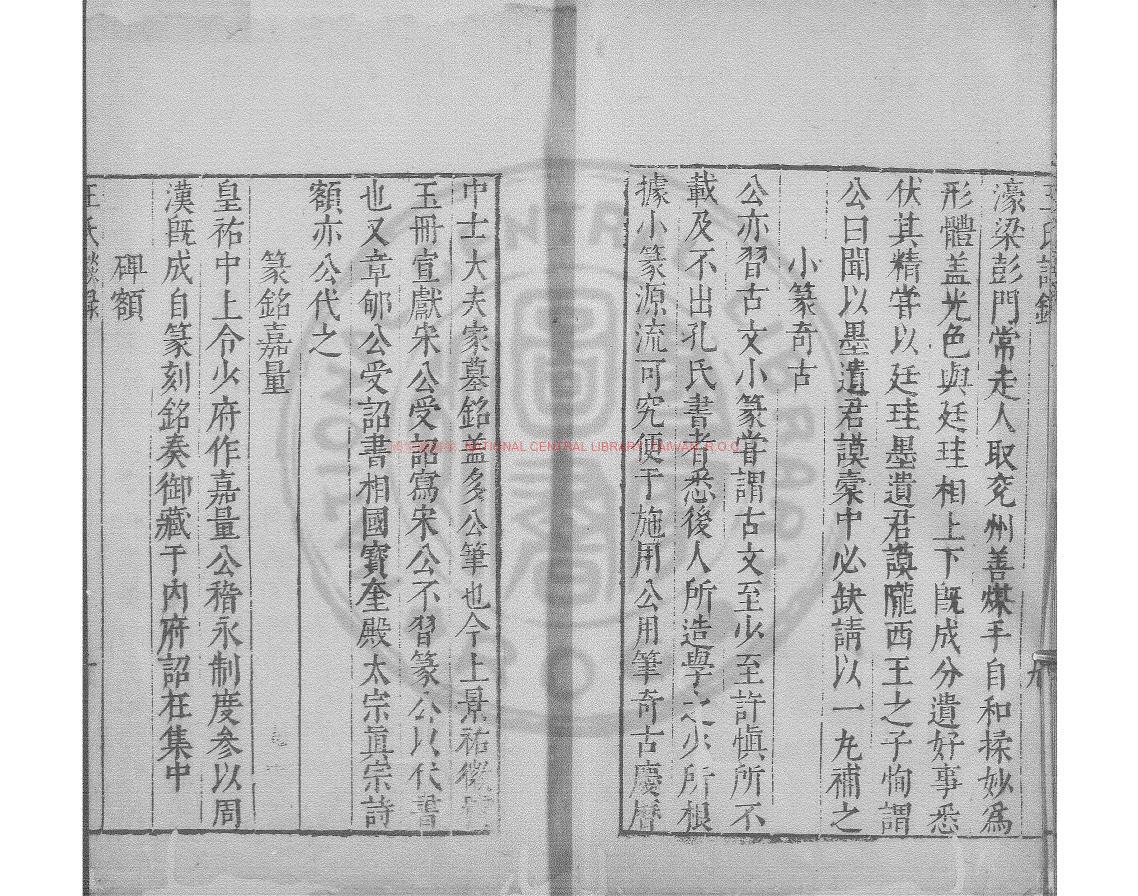 王氏談錄
九
濠梁彭門常走人取兖州善煤手自和揉妙為
形體盖光色與廷珪相上下旣成分遺好事悉
伏其精嘗以廷珪墨遺君謨隴西王之子恂謂
公曰聞以墨遺君謨橐中必缺請以一丸補之
小篆奇古
公亦習古文小篆嘗謂古文至少至許慎所不
載及不出孔氏書者悉後人所造學之少所根
據小篆源流可究便于施用公用筆奇古慶曆
中士大夫家墓銘盖多公筆也今上景祐
玉冊宣獻宋公受詔寫宋公不習篆公以代書
也又章郇公受詔書相國寶奎殿太宗眞宗詩
額亦公代之
篆銘嘉量
皇祐中上令少府作嘉量公稽永制度参以周
漢旣成自篆刻銘奏御藏于内府詔在集中
碑額
王氏談録
十
國家圖書館, NATIONAL CENTRAL LIBRARY, TAIWAN, R.O.C